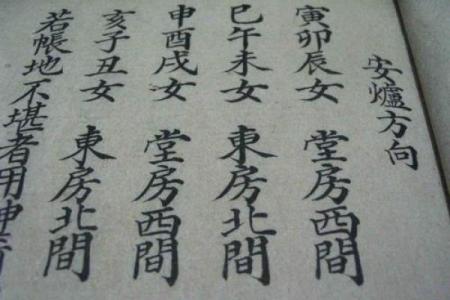 安爐方向
寅卯辰女 堂房西間
巳午未女 東房北間
申酉戌女 堂房西間
亥子丑女 東房北間
若帳地不堪者用